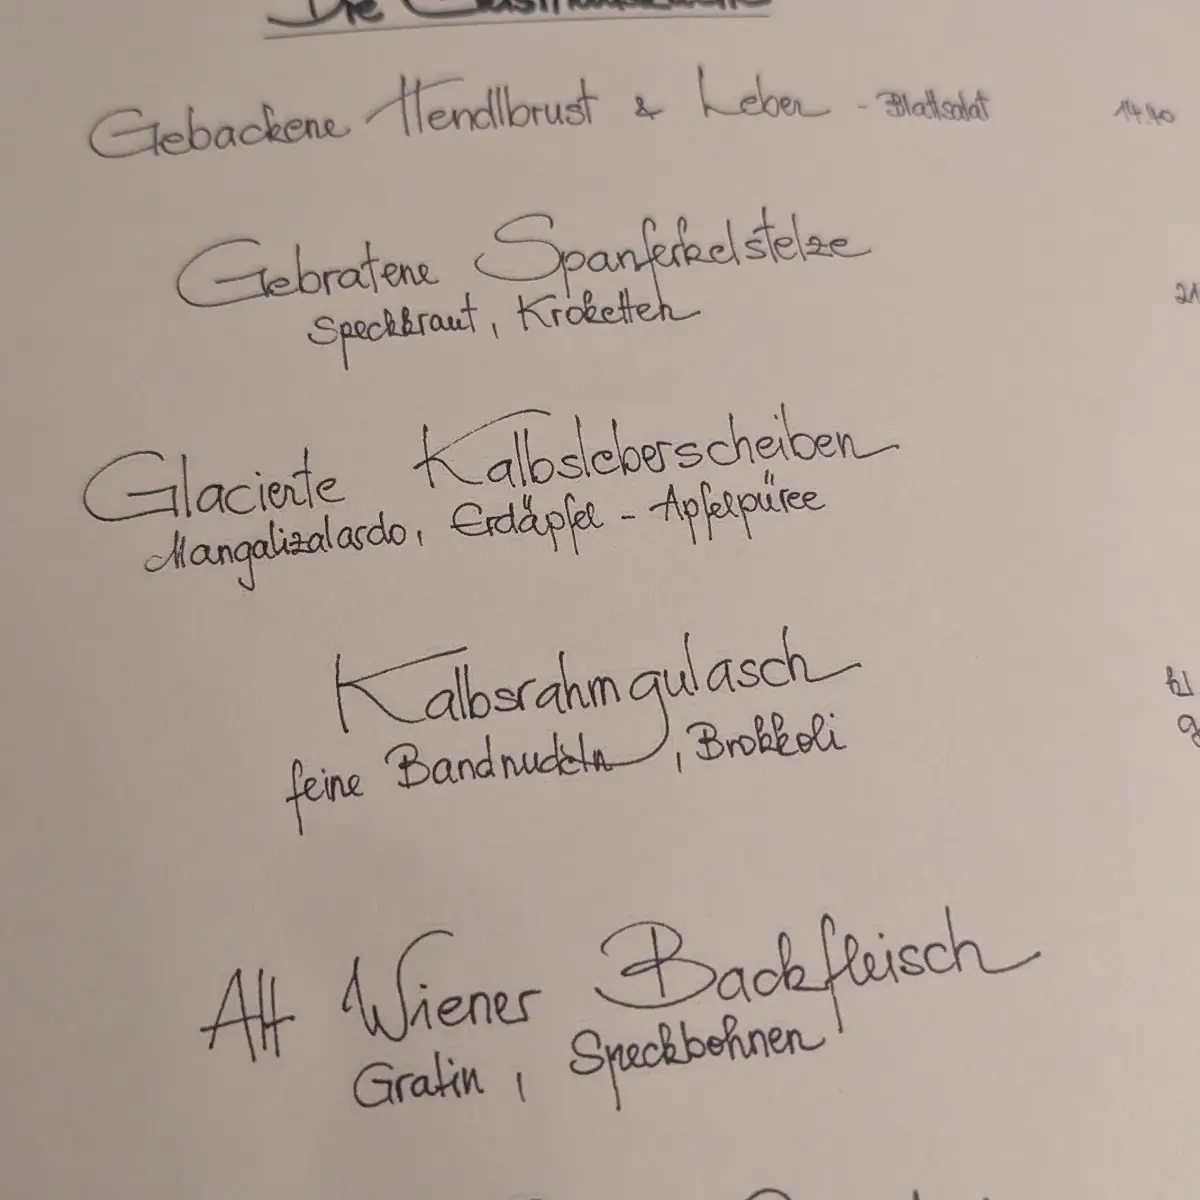 Die
Gebackene Hendlbrust & Leber - Blattsalat 14.40
Gebratene Spanferkelstelze
Speckkraut, Kroketten 21
Glacierte Kalbsleberscheiben
Mangalizalardo, Erdäpfel - Apfelpüree
Kalbsrahmgulasch kl
feine Bandnudeln, Brokkoli
Alt Wiener Backfleisch
Gratin, Speckbohnen